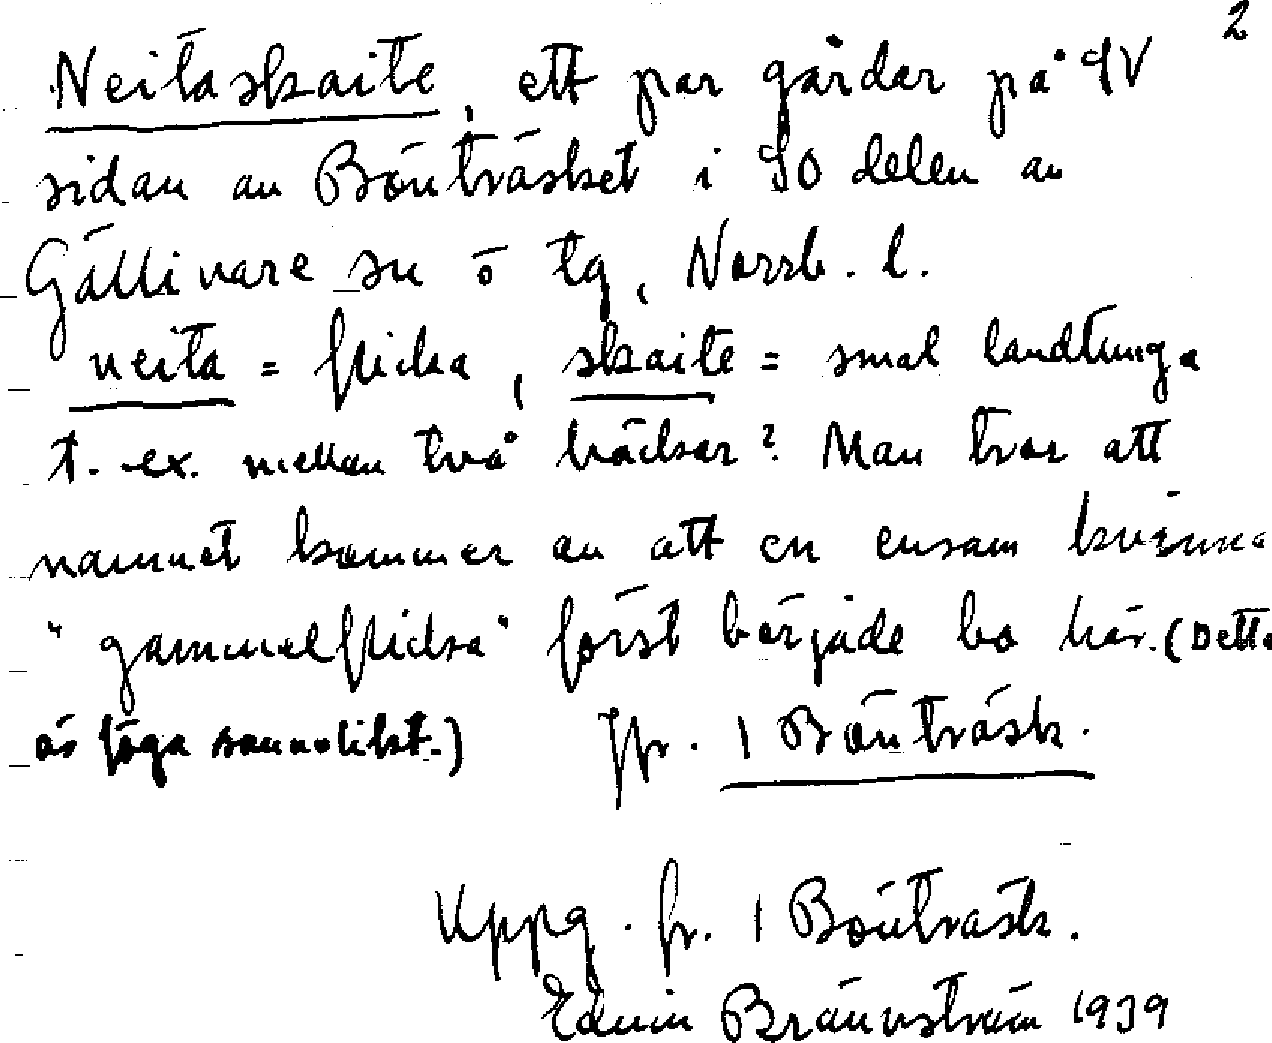 2
Neitaskaite, ett par gårdar på SV
sidan av Bönträsket i SO delen av
Gällivare sn o tg, Norrb. l.
neita = flicka, skaite = smal landtunga
t. ex. mellan två bäckar? Man tror att
namnet kommer av att en ensam kvinna
"gammelflicka" först började bo här. (Detta
är föga sannolikt.) Jfr. 1 Bönträsk.
Uppg. fr. 1 Bönträsk.
Edvin Brännström 1939